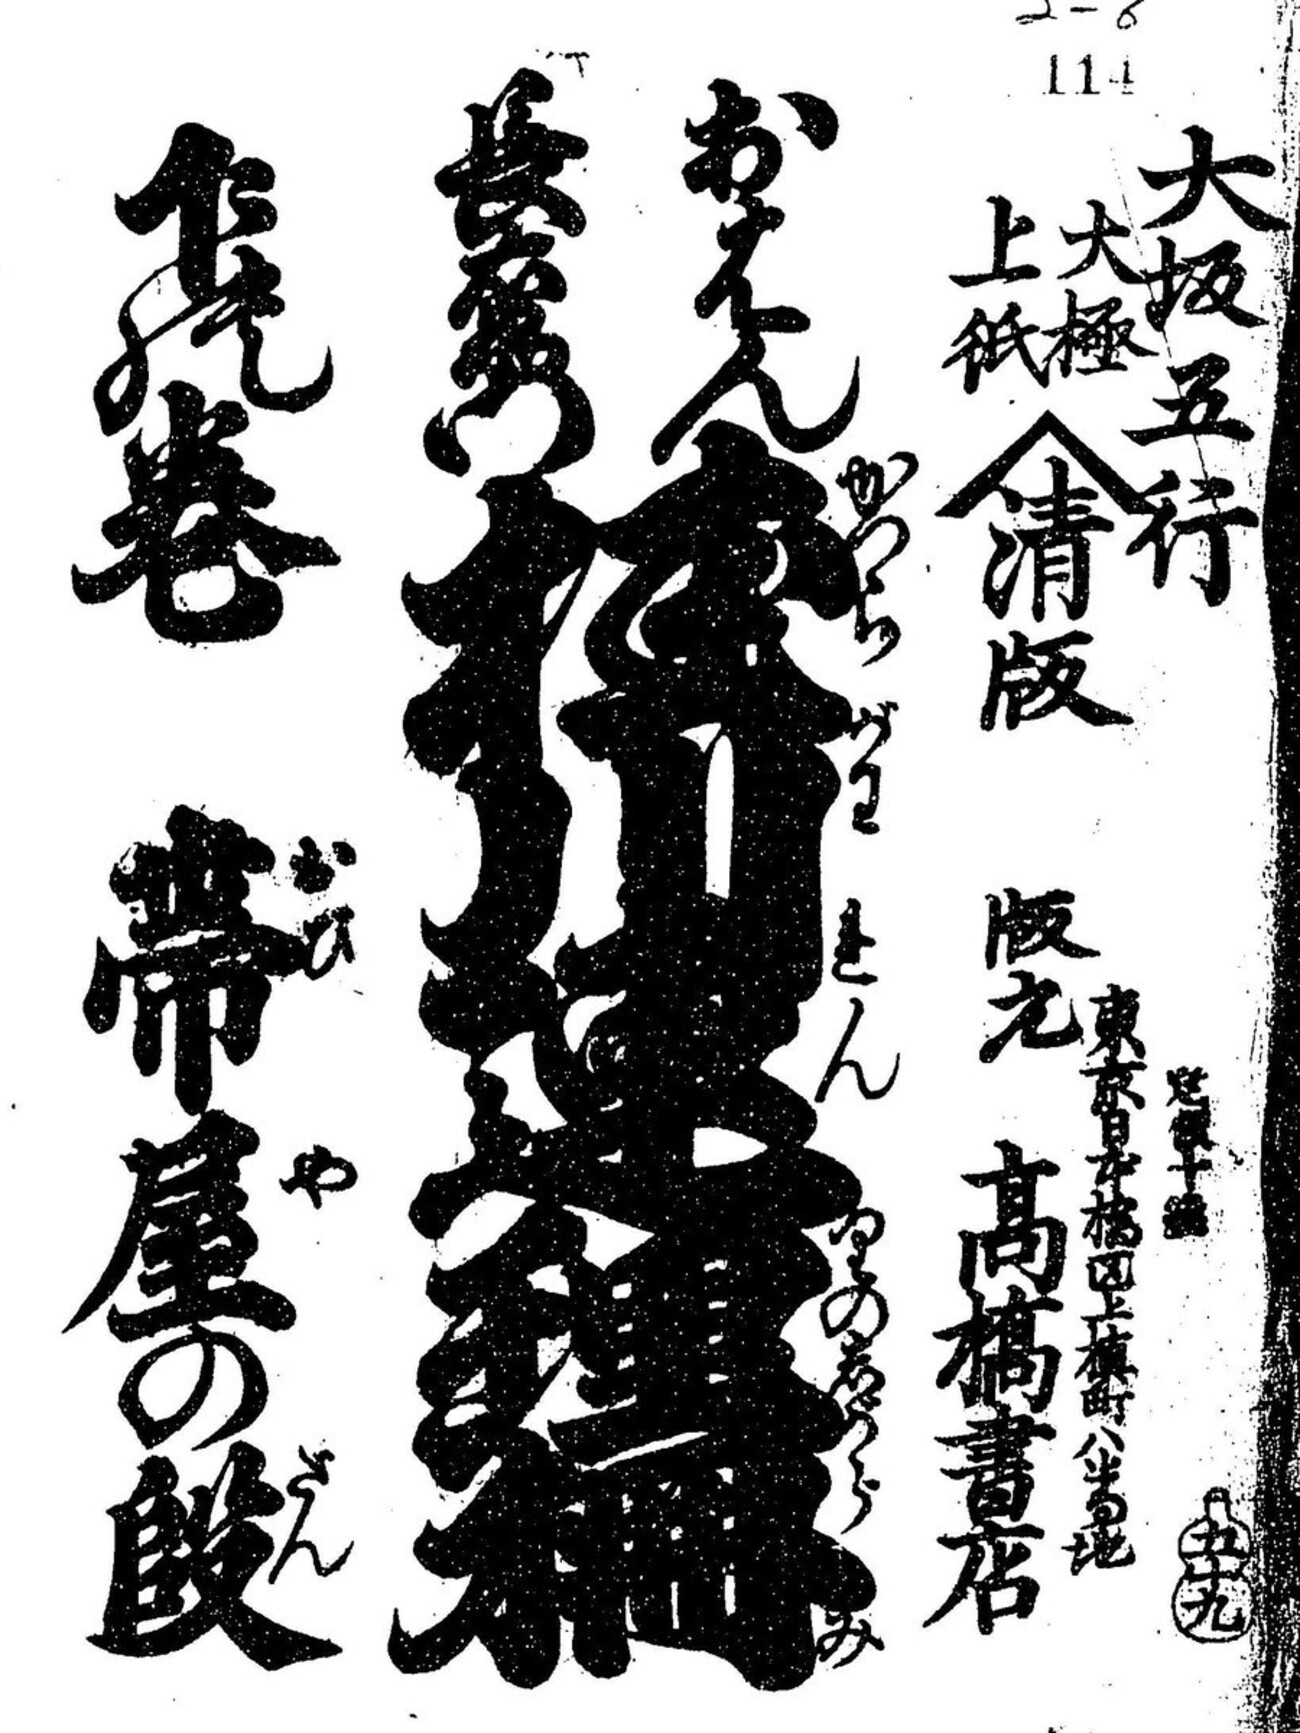 114
大坂五行
大極
上紙
清版
版元
東京日本橋区上槙町八番地
高橋書店
五十九
おはん
長右衛門
桂川連理柵
かつらがはれんりのしがらみ
下の巻
帯屋の段
おび
や
だん